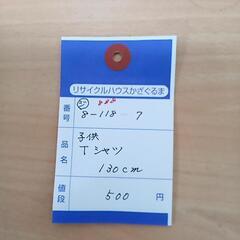 リサイクルハウスかざぐるま
番号 8-118-7
品名 子供
Tシャツ
130cm
値段 500 円